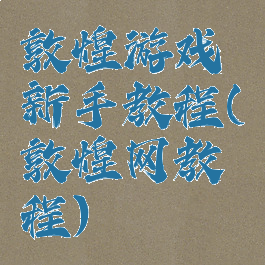 敦煌游戏
新手教程(
敦煌网教
程)